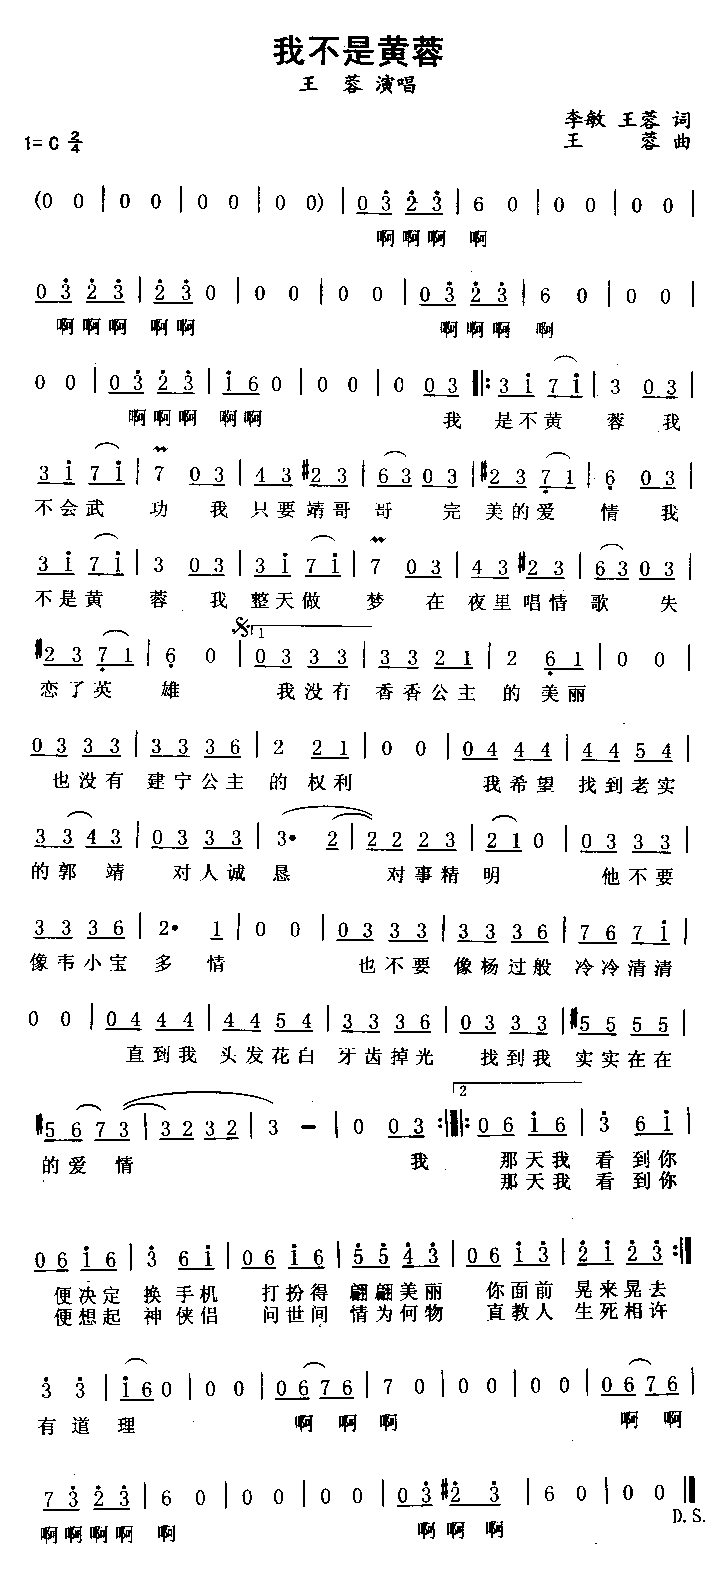 我不是黄蓉
王 蓉 演唱
李敏 王蓉 词
1=C 2/4
王 蓉 曲
(0 0 | 0 0 | 0 0 | 0 0) | 0 3 2 3 | 6 0 | 0 0 | 0 0 |
啊啊啊 啊
0 3 2 3 | 2 3 0 | 0 0 | 0 0 | 0 3 2 3 | 6 0 | 0 0 |
啊啊啊 啊啊 啊啊啊 啊
0 0 | 0 3 2 3 | 1 6 0 | 0 0 | 0 0 3 ‖: 3 1 7 1 | 3 0 3 |
啊啊啊 啊啊 我 是不黄 蓉 我
3 1 7 1 | 7 0 3 | 4 3 #2 3 | 6 3 0 3 | #2 3 7 1 | 6 0 3 |
不会武 功 我 只要靖哥 哥 完 美的爱 情 我
3 1 7 1 | 3 0 3 | 3 1 7 1 | 7 0 3 | 4 3 #2 3 | 6 3 0 3 |
不是黄 蓉 我 整天做 梦 在 夜里唱情 歌 失
#2 3 7 1 | 6 0 | 0 3 3 3 | 3 3 2 1 | 2 6 1 | 0 0 |
1
恋了英 雄 我没有 香香公主 的 美丽
0 3 3 3 | 3 3 3 6 | 2 2 1 | 0 0 | 0 4 4 4 | 4 4 5 4 |
也没有 建宁公主 的 权利 我希望 找到老实
3 3 4 3 | 0 3 3 3 | 3· 2 | 2 2 2 3 | 2 1 0 | 0 3 3 3 |
的郭 靖 对人诚 恳 对事精 明 他不要
3 3 3 6 | 2· 1 | 0 0 | 0 3 3 3 | 3 3 3 6 | 7 6 7 1 |
像韦小宝 多 情 也不要 像杨过般 冷冷清清
0 0 | 0 4 4 4 | 4 4 5 4 | 3 3 3 6 | 0 3 3 3 | #5 5 5 5 |
直到我 头发花白 牙齿掉光 找到我 实实在在
#5 6 7 3 | 3 2 3 2 | 3 - | 0 0 3 :‖: 0 6 1 6 | 3 6 1 |
2
的爱 情 我 那天我 看 到你
那天我 看 到你
0 6 1 6 | 3 6 1 | 0 6 1 6 | 5 5 4 3 | 0 6 1 1 | 2 1 2 3 :‖
便决定 换 手机 打扮得 翩翩美丽 你面前 晃来晃去
便想起 神 侠侣 问世间 情为何物 直教人 生死相许
3 3 | 1 6 0 | 0 0 | 0 6 7 6 | 7 0 | 0 0 | 0 0 | 0 6 7 6 |
有 道 理 啊 啊 啊 啊 啊
7 3 2 3 | 6 0 | 0 0 | 0 0 | 0 3 #2 3 | 6 0 | 0 0 ‖
D.S.
啊啊啊啊 啊 啊啊 啊